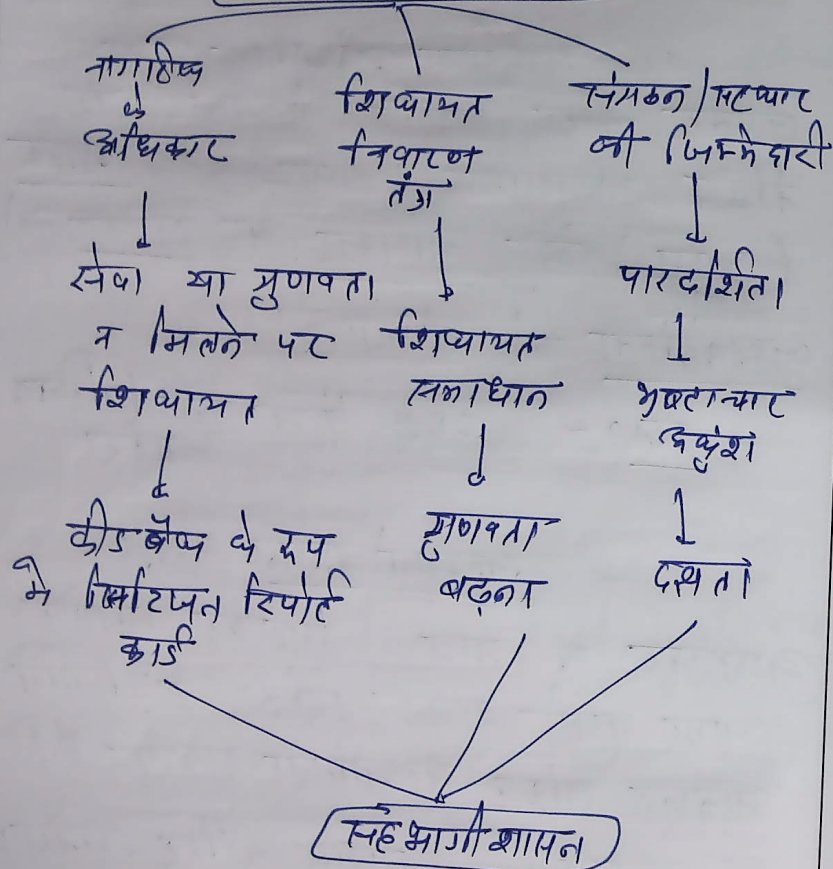 नागरिक
के
अधिकार
सेवा या गुणवता
न मिलने पर
शिकायत
फीडबैक के रूप
मे सिटिजन रिपोर्ट
कार्ड
शिकायत
निवारण
तंत्र
शिकायत
समाधान
गुणवता
बढ़ना
संगठन/सरकार
की जिम्मेदारी
पारदर्शिता
भ्रष्टाचार
अंकुश
दक्षता
सहभागी शासन